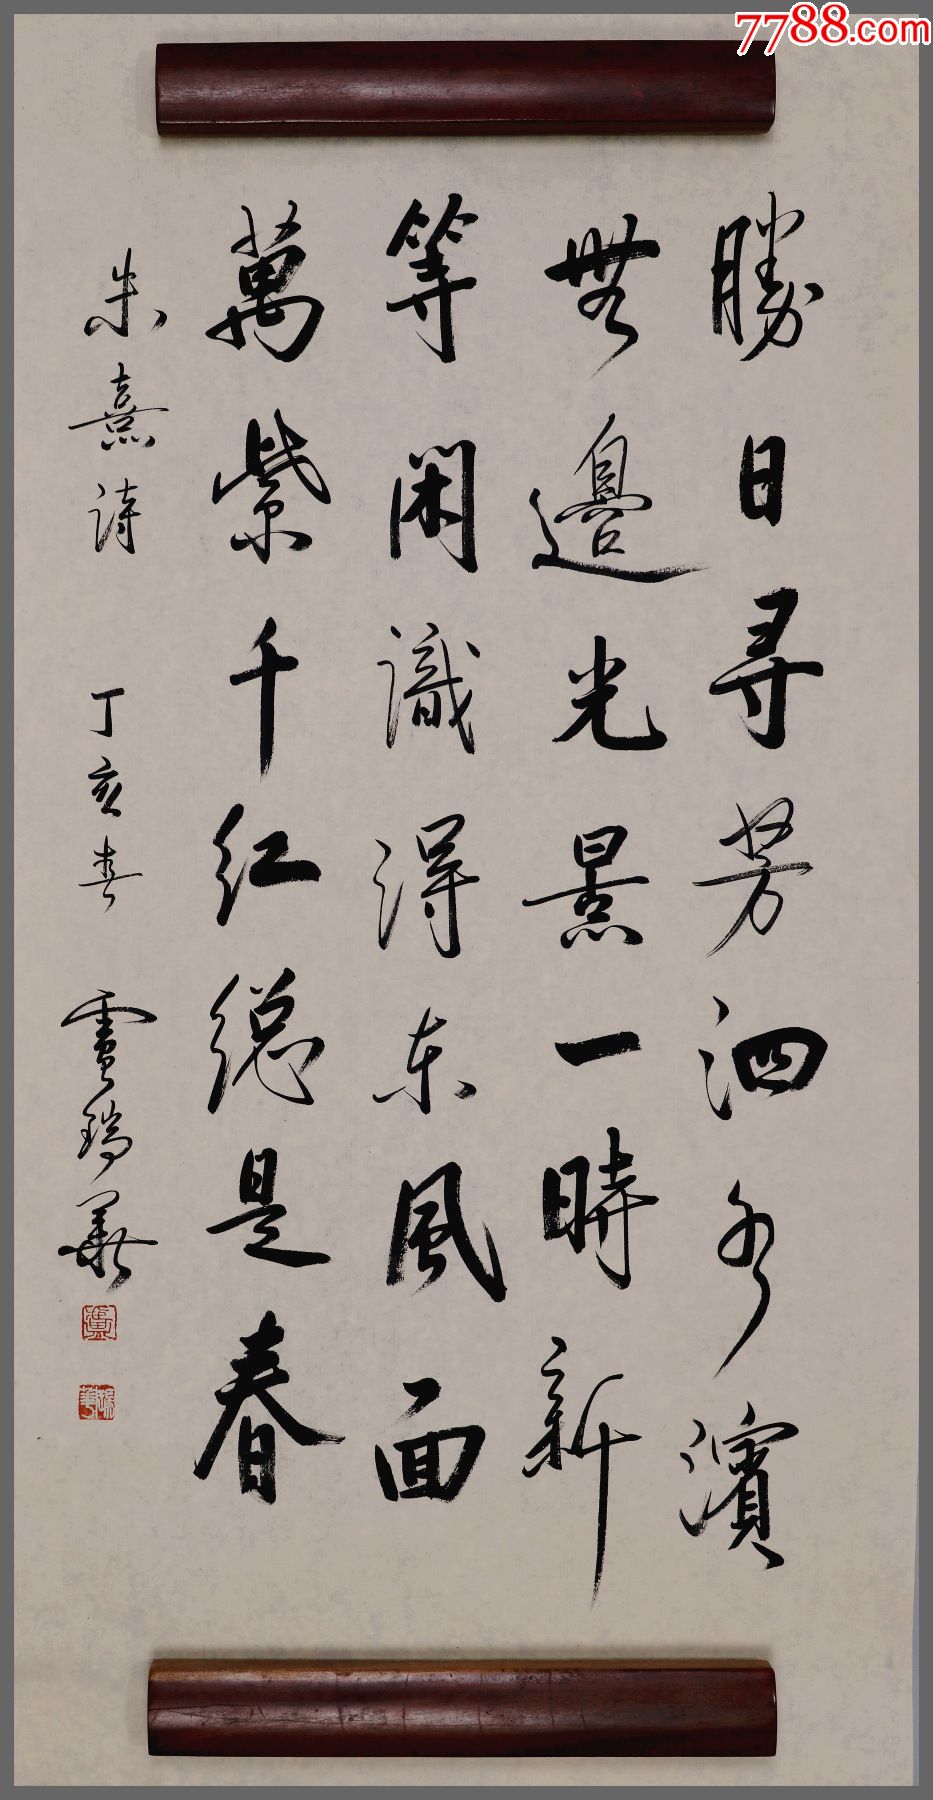 7788.com
勝日尋芳泗水濱
無邊光景一時新
等閑識得东風面
萬紫千红總是春
朱熹詩 丁亥春 盧瑞華